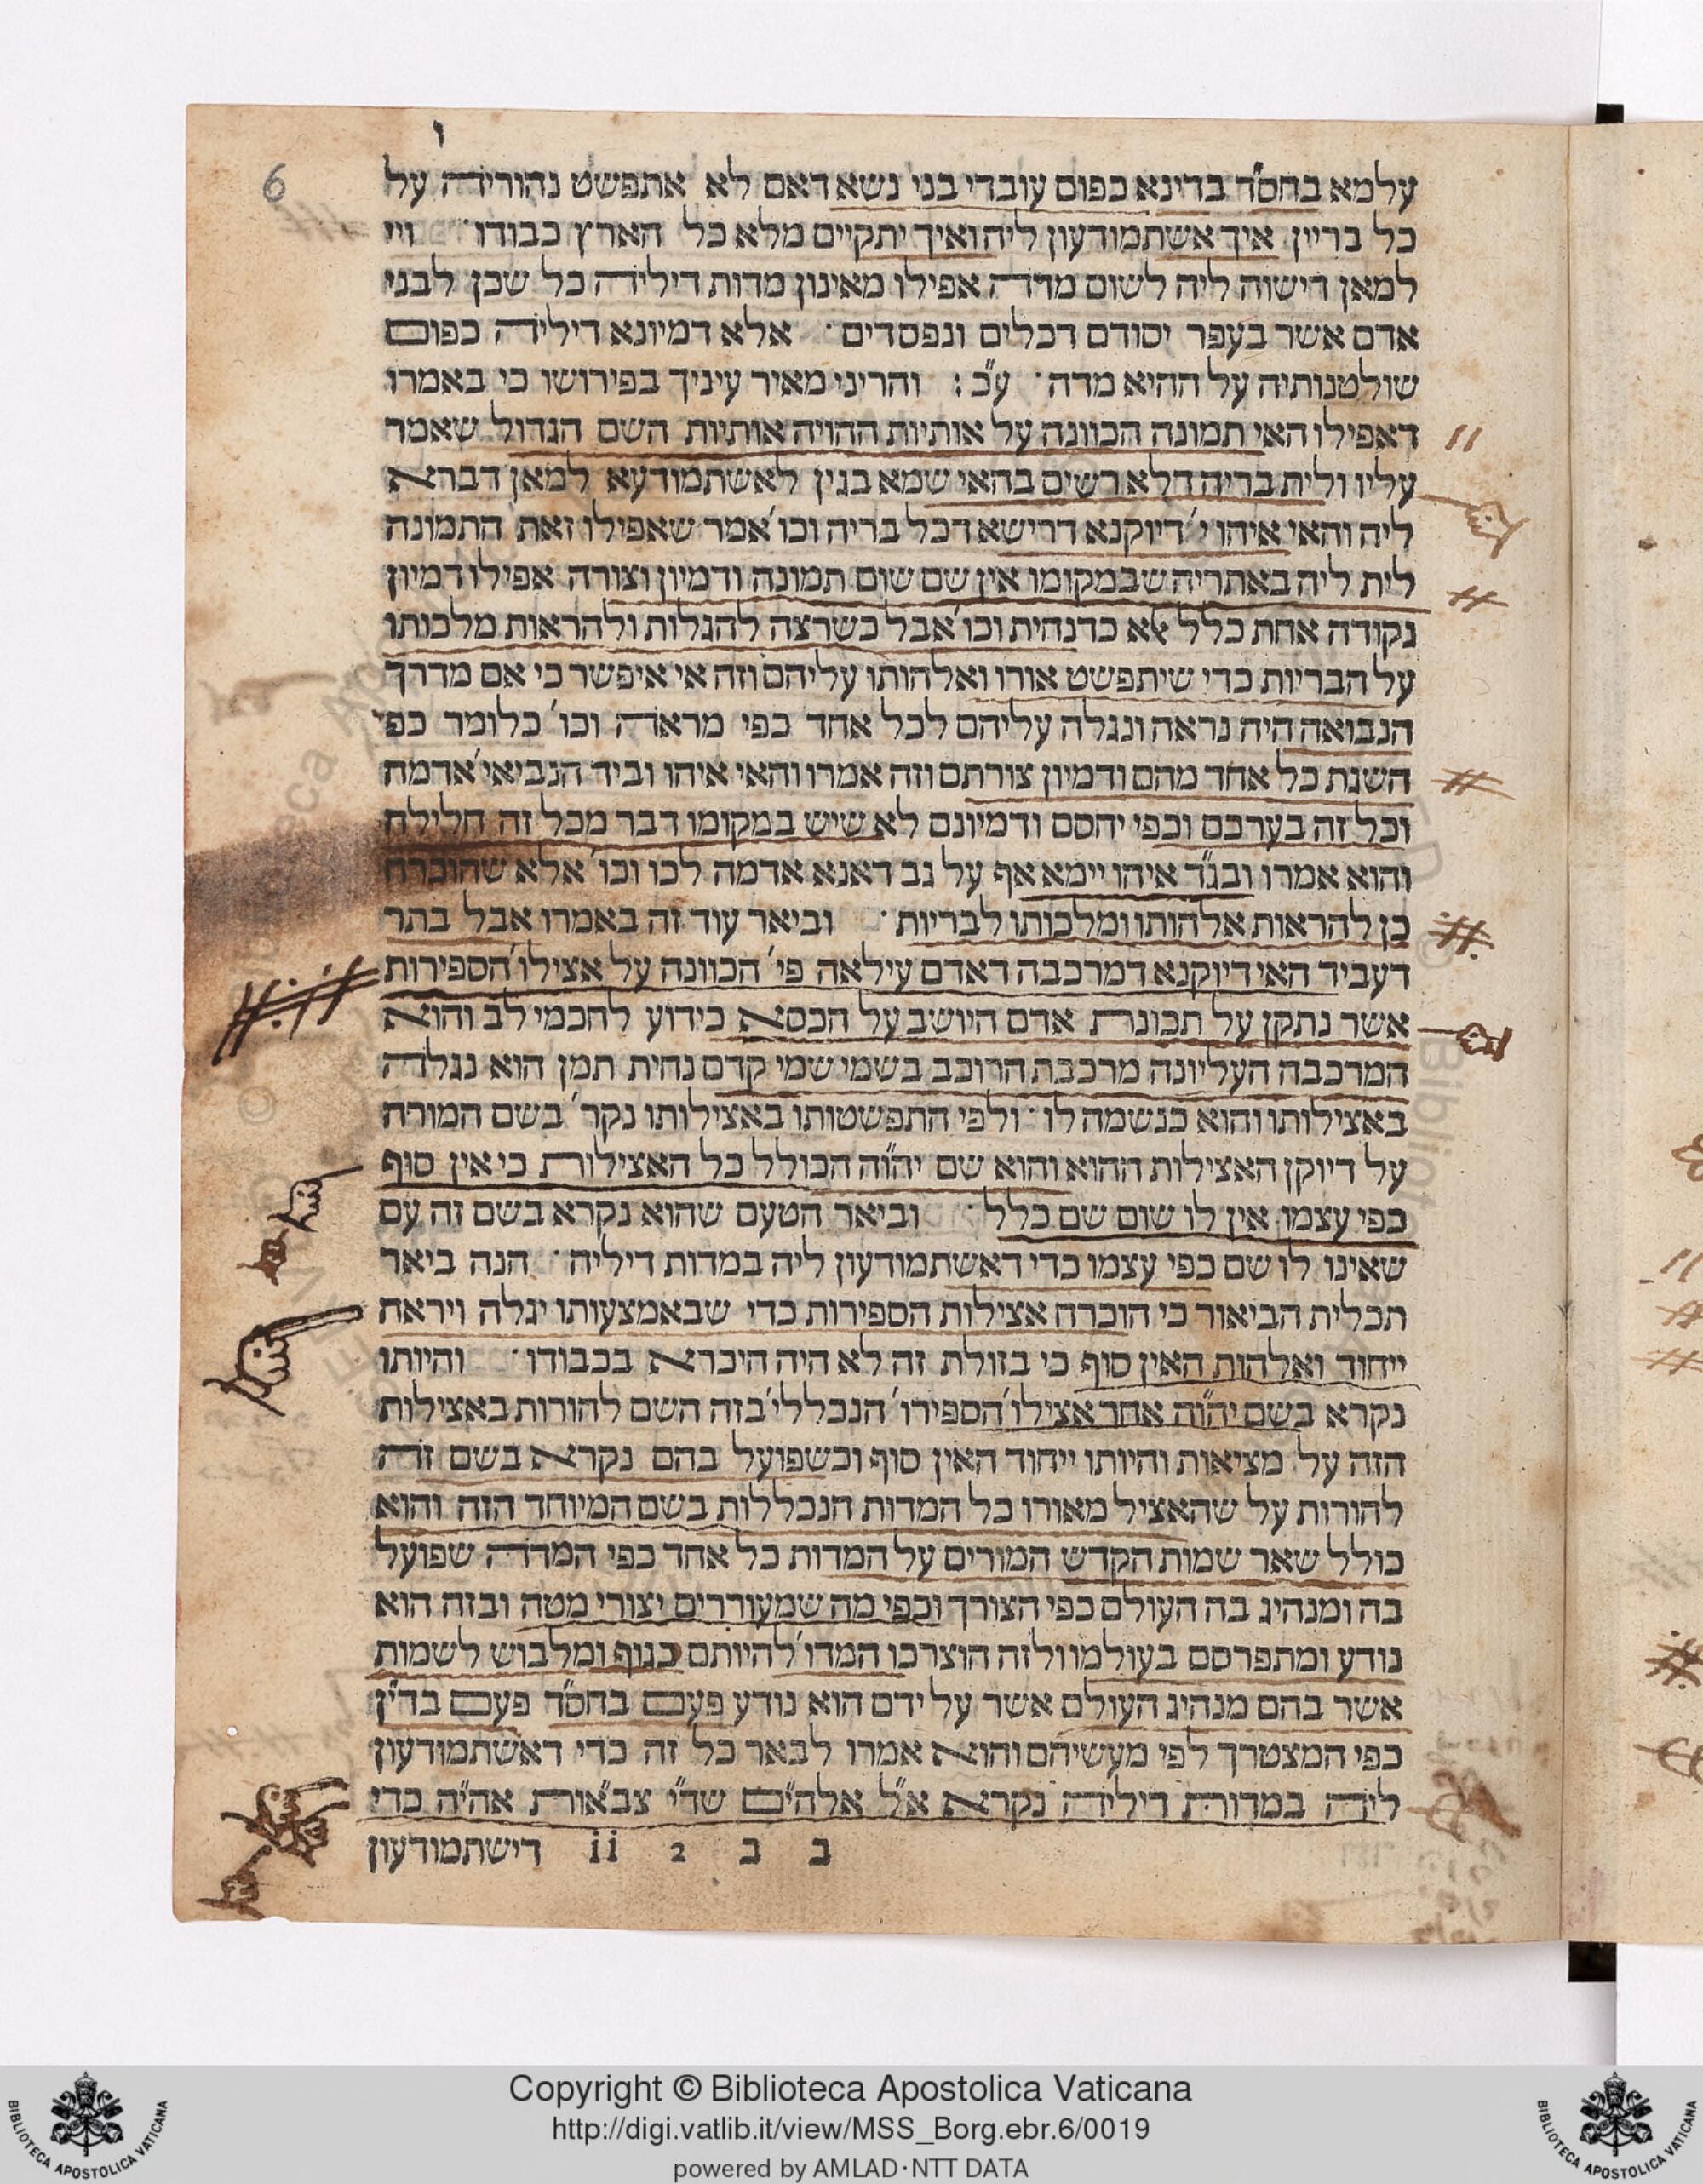 ו
6
עלמא בחס״ד בדינא כפום עובדי בני נשא דאם לא אתפשט נהוריה על
כל בריין איך אשתמודעון ליה ואיך יתקיים מלא כל הארץ כבודו ׳ ווי
למאן דישוה ליה לשום מדה אפילו מאינון מדות דיליה כל שכן לבני
אדם אשר בעפר יסודם דכלים ונפסדים ׳ אלא דמיונא דיליה כפום
שולטנותיה על ההיא מדה ׳ ע״כ : והריני מאיר עיניך בפירושו כי באמרו
דאפילו האי תמונה הכוונה על אותיות ההויה אותיות השם הגדול שאמר
עליו ולית בריה דלא רשים בהאי שמא בגין לאשתמודעא למאן דברא
ליה והאי איהו י׳ דיוקנא דרישא דכל בריה וכו׳ אמר שאפילו זאת התמונה
לית ליה באתריה שבמקומו אין שם שום תמונה ודמיון וצורה אפילו דמיון
נקודה אחת כלל לא כדנחית וכו׳ אבל כשרצה להגלות ולהראות מלכותו
על הבריות כדי שיתפשט אורו ואלהותו עליהם וזה אי איפשר כי אם מדרך
הנבואה היה נראה ונגלה עליהם לכל אחד כפי מראה וכו׳ כלומר כפי
השגת כל אחד מהם ודמיון צורתם וזה אמרו והאי איהו וביד הנביאי׳ אדמה
וכל זה בערכם וכפי יחסם ודמיונם לא שיש במקומו דבר מכל זה חלילה
והוא אמרו ובג״ד איהו יימא אף על גב דאנא אדמה לכו וכו׳ אלא שהוכרח
כן להראות אלהותו ומלכותו לבריות ׳ וביאר עוד זה באמרו אבל בתר
דעביד האי דיוקנא דמרכבה דאדם עילאה פי׳ הכוונה על אצילו׳ הספירות
אשר נתקן על תכונת אדם היושב על הכסא כידוע לחכמי לב והוא
המרכבה העליונה מרכבת הרוכב בשמי שמי קדם נחית תמן הוא נגלה
באצילותו והוא כנשמה לו ׳ ולפי התפשטותו באצילותו נקר׳ בשם המורה
על דיוקן האצילות ההוא והוא שם יהו״ה הכולל כל האצילות כי אין סוף
כפי עצמו אין לו שום שם כלל ׳ וביאר הטעם שהוא נקרא בשם זה עם
שאינו לו שם כפי עצמו כדי דאשתמודעון ליה במדות דיליה ׳ הנה ביאר
תכלית הביאור כי הוכרח אצילות הספירות כדי שבאמצעותו יגלה ויראה
ייחוד ואלהות האין סוף כי בזולת זה לא היה היכרא בכבודו ׳ והיותו
נקרא בשם יהו״ה אחר אצילו׳ הספירו׳ הנכללי׳ בזה השם להורות באצילות
הזה על מציאות והיותו ייחוד האין סוף וכשפועל בהם נקרא בשם זה
להורות על שהאציל מאורו כל המדות הנכללות בשם המיוחד הזה והוא
כולל שאר שמות הקדש המורים על המדות כל אחד כפי המדה שפועל
בה ומנהיג בה העולם כפי הצורך וכפי מה שמעוררים יצורי מטה ובזה הוא
נודע ומתפרסם בעולמו ולזה הוצרכו המדו׳ להיותם כגוף ומלבוש לשמות
אשר בהם מנהיג העולם אשר על ידם הוא נודע פעם בחס״ד פעם בדי״ן
כפי המצטרך לפי מעשיהם והוא אמרו לבאר כל זה כדי דאשתמודעון
ליה במדות דיליה נקרא א״ל אלהי״ם שד״י צבאו״ת אהי״ה כדי
ב ב 2 ii דישתמודעון
Copyright © Biblioteca Apostolica Vaticana
http://digi.vatlib.it/view/MSS_Borg.ebr.6/0019
powered by AMLAD·NTT DATA
BIBLIOTECA APOSTOLICA VATICANA
BIBLIOTECA APOSTOLICA VATICANA